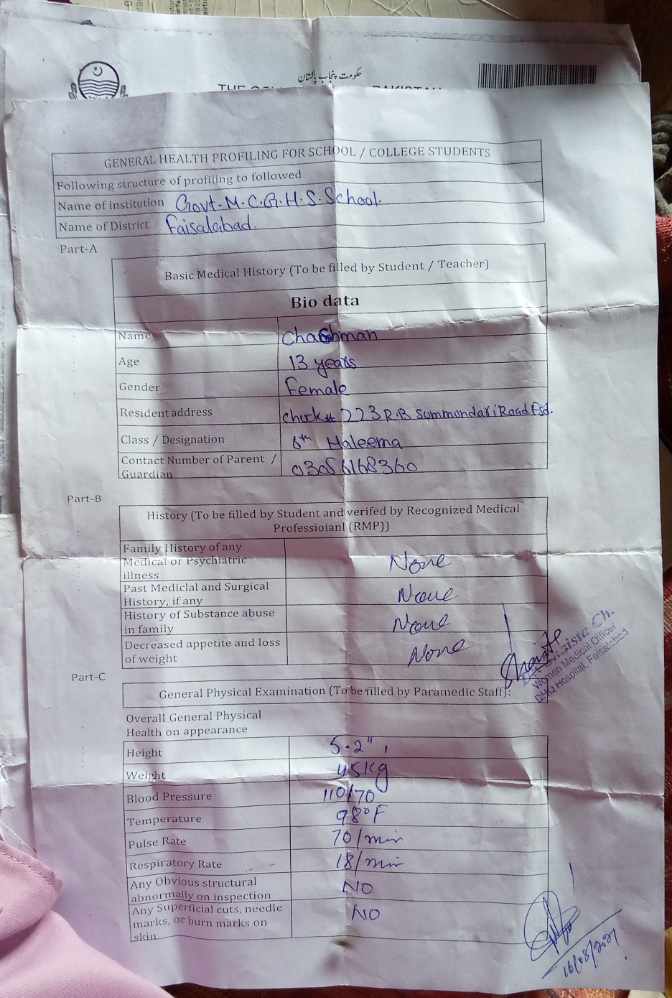 حکومت پنجاب پاکستان
GENERAL HEALTH PROFILING FOR SCHOOL / COLLEGE STUDENTS
Following structure of profiling to followed
Name of institution Govt. M.C.G.H.S. School.
Name of District Faisalabad.
Part-A
Basic Medical History (To be filled by Student / Teacher)
Bio data
Name Chashman
Age 13 years
Gender Female
Resident address chuck# 223 R.B Summondari Road Fsd.
Class / Designation 6th Haleema
Contact Number of Parent / Guardian 03056168360
Part-B
History (To be filled by Student and verifed by Recognized Medical
Professioianl (RMP))
Family History of any
Medical or Psychiatric
illness None
Past Mediclal and Surgical
History, if any None
History of Substance abuse
in family None
Decreased appetite and loss
of weight None
Women Medical Officer
DHQ Hospital, Faisalabad
Part-C
General Physical Examination (To be filled by Paramedic Staff):
Overall General Physical
Health on appearance
Height 5.2"
Weight 45kg
Blood Pressure 110/70
Temperature 98°F
Pulse Rate 70/min
Respiratory Rate 18/min
Any Obvious structural
abnormally on inspection NO
Any Superficial cuts, needle
marks, or burn marks on
skin NO
16/08/2021